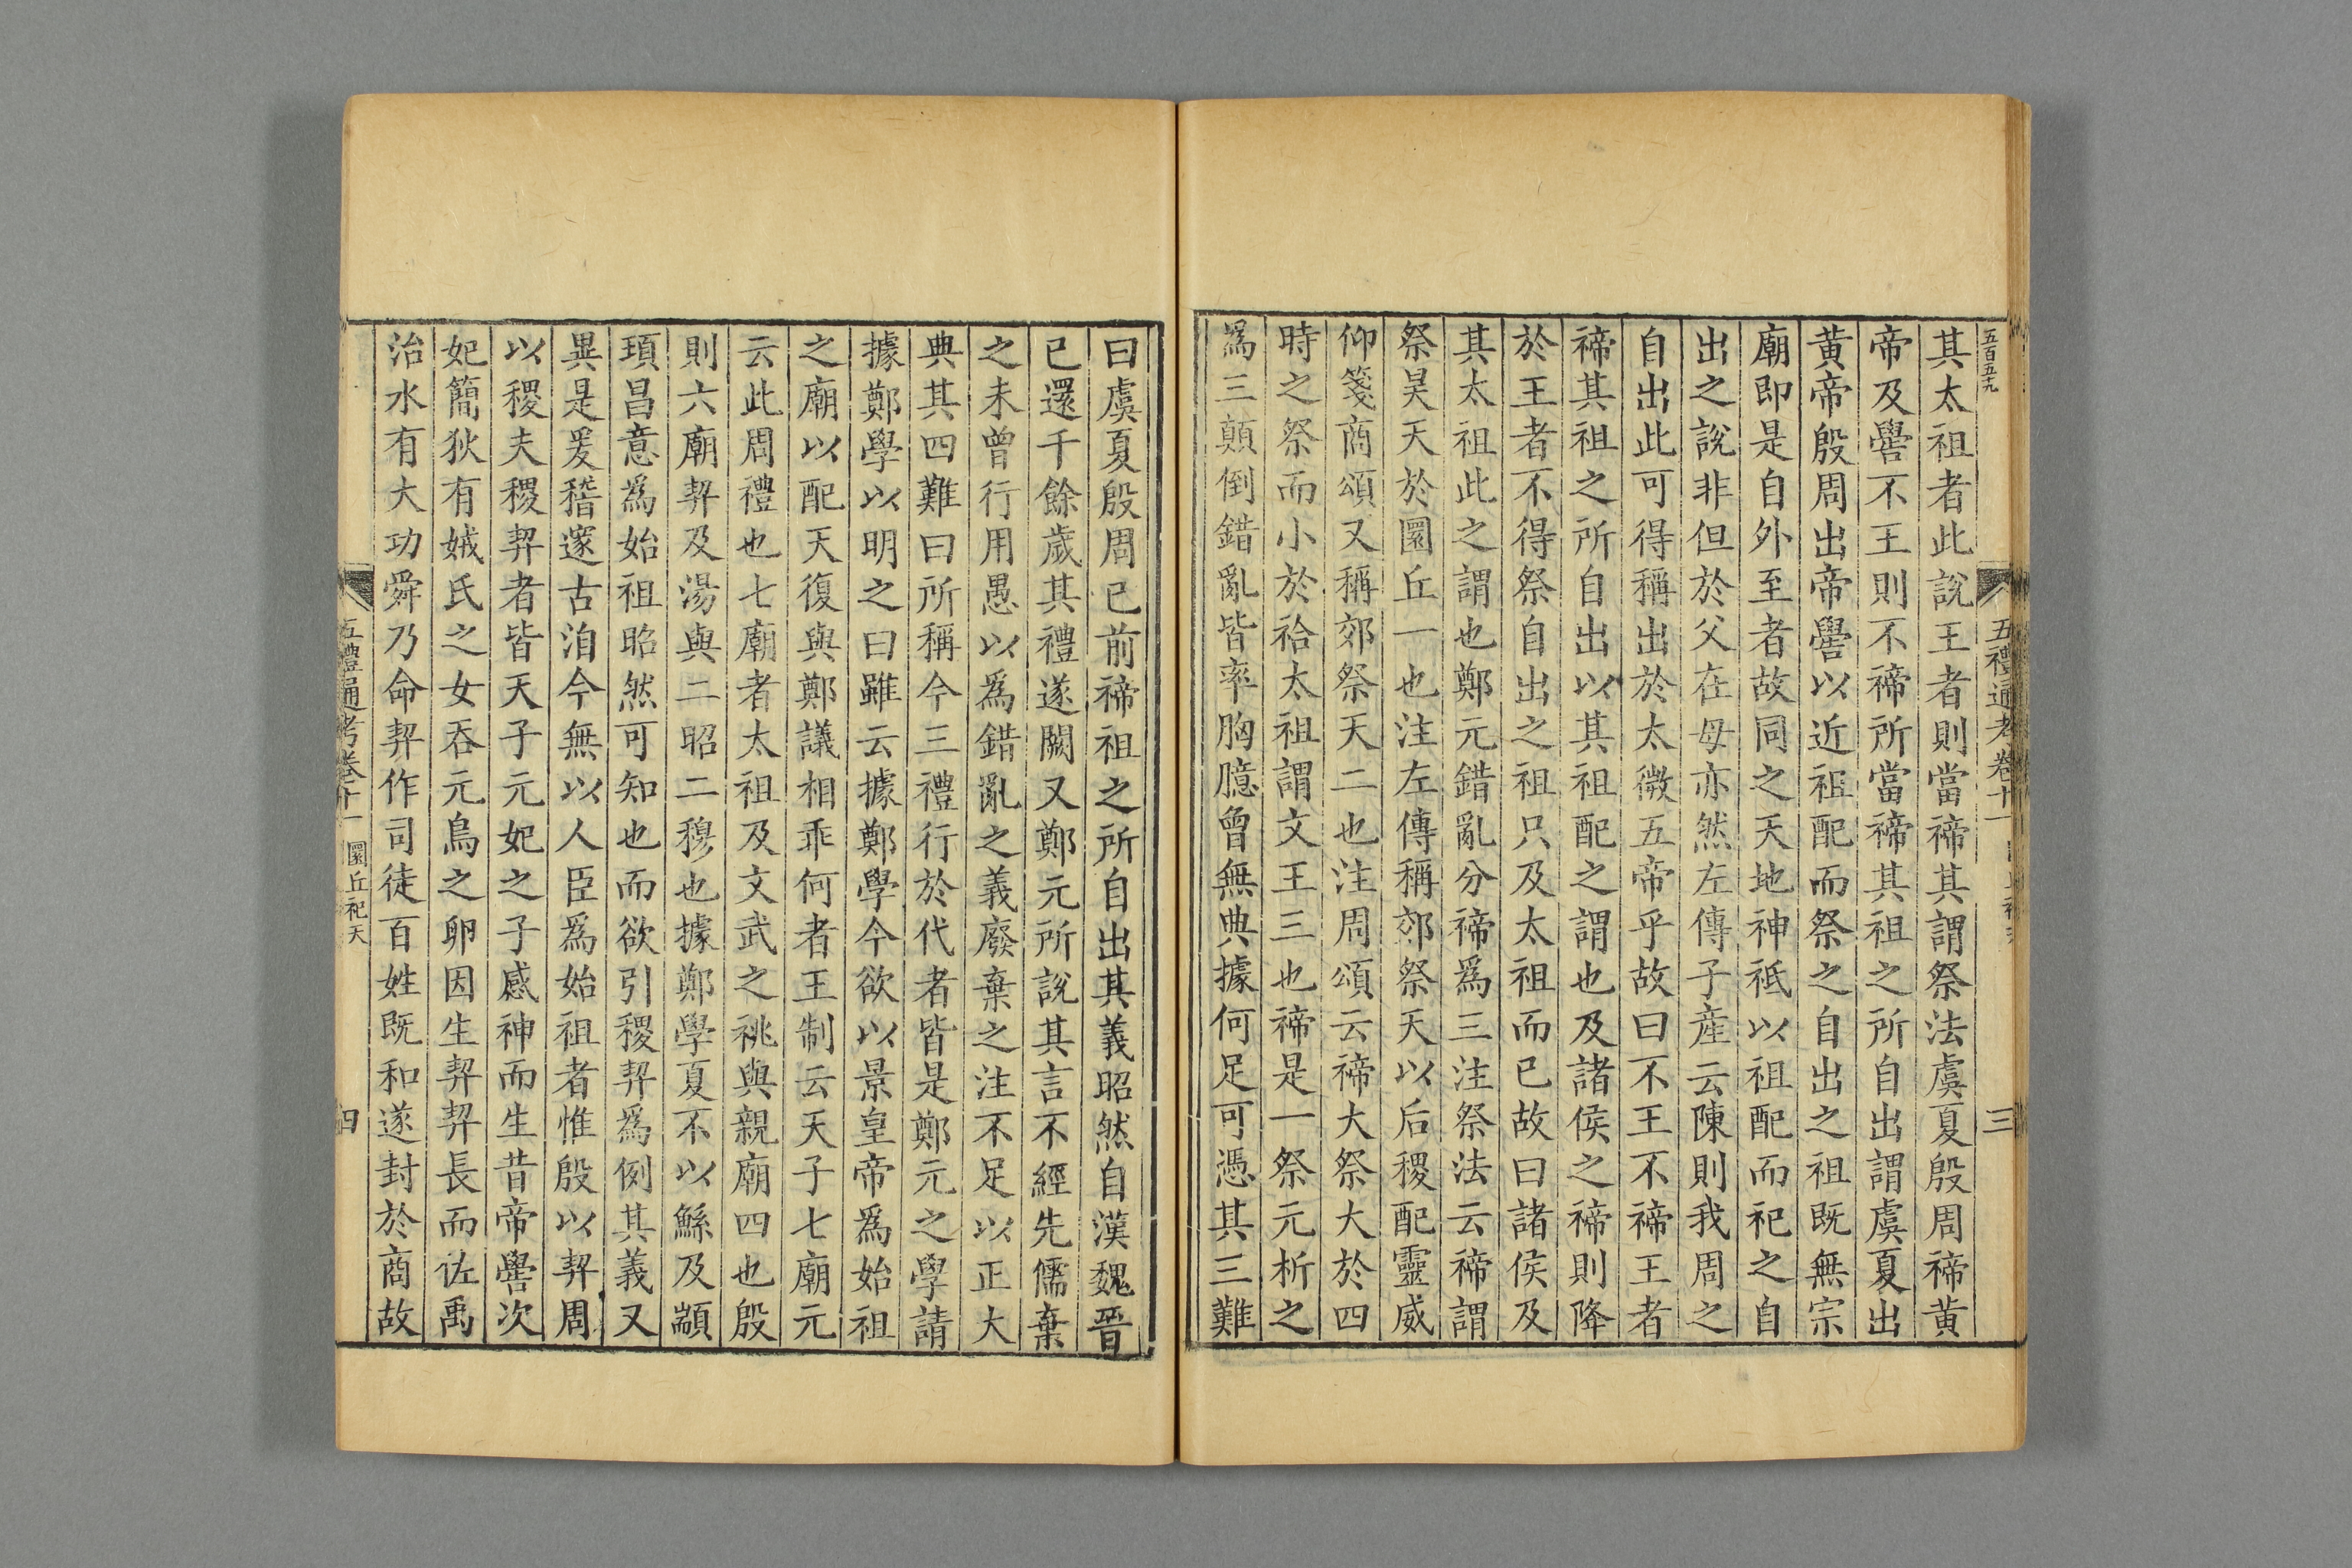 五百五十九
五禮通考卷十一
三
其太祖者此說王者則當禘其謂祭法虞夏殷周禘黄
帝及嚳不王則不禘所當禘其祖之所自出謂虞夏出
黄帝殷周出帝嚳以近祖配而祭之自出之祖既無宗
廟即是自外至者故同之天地神祇以祖配而祀之自
出之說非但於父在母亦然左傳子產云陳則我周之
自出此可得稱出於太微五帝乎故曰不王不禘王者
禘其祖之所自出以其祖配之謂也及諸侯之禘則降
於王者不得祭自出之祖只及太祖而已故曰諸侯及
其太祖此之謂也鄭元錯亂分禘爲三注祭法云禘謂
祭昊天於圜丘一也注左傳稱郊祭天以后稷配靈威
仰箋商頌又稱郊祭天二也注周頌云禘大祭大於四
時之祭而小於祫太祖謂文王三也禘是一祭元析之
爲三顛倒錯亂皆率胸臆曾無典據何足可憑其三難
曰虞夏殷周已前禘祖之所自出其義昭然自漢魏晉
已還千餘歲其禮遂闕又鄭元所說其言不經先儒棄
之未曾行用愚以爲錯亂之義廢棄之注不足以正大
典其四難曰所稱今三禮行於代者皆是鄭元之學請
據鄭學以明之曰雖云據鄭學今欲以景皇帝爲始祖
之廟以配天復與鄭議相乖何者王制云天子七廟元
云此周禮也七廟者太祖及文武之祧與親廟四也殷
則六廟契及湯與二昭二穆也據鄭學夏不以鯀及顓
頊昌意爲始祖昭然可知也而欲引稷契爲例其義又
異是爰稽邃古洎今無以人臣爲始祖者惟殷以契周
以稷夫稷契者皆天子元妃之子感神而生昔帝嚳次
妃簡狄有娀氏之女吞元鳥之卵因生契契長而佐禹
治水有大功舜乃命契作司徒百姓既和遂封於商故
五禮通考卷十一 圜丘祀天
四